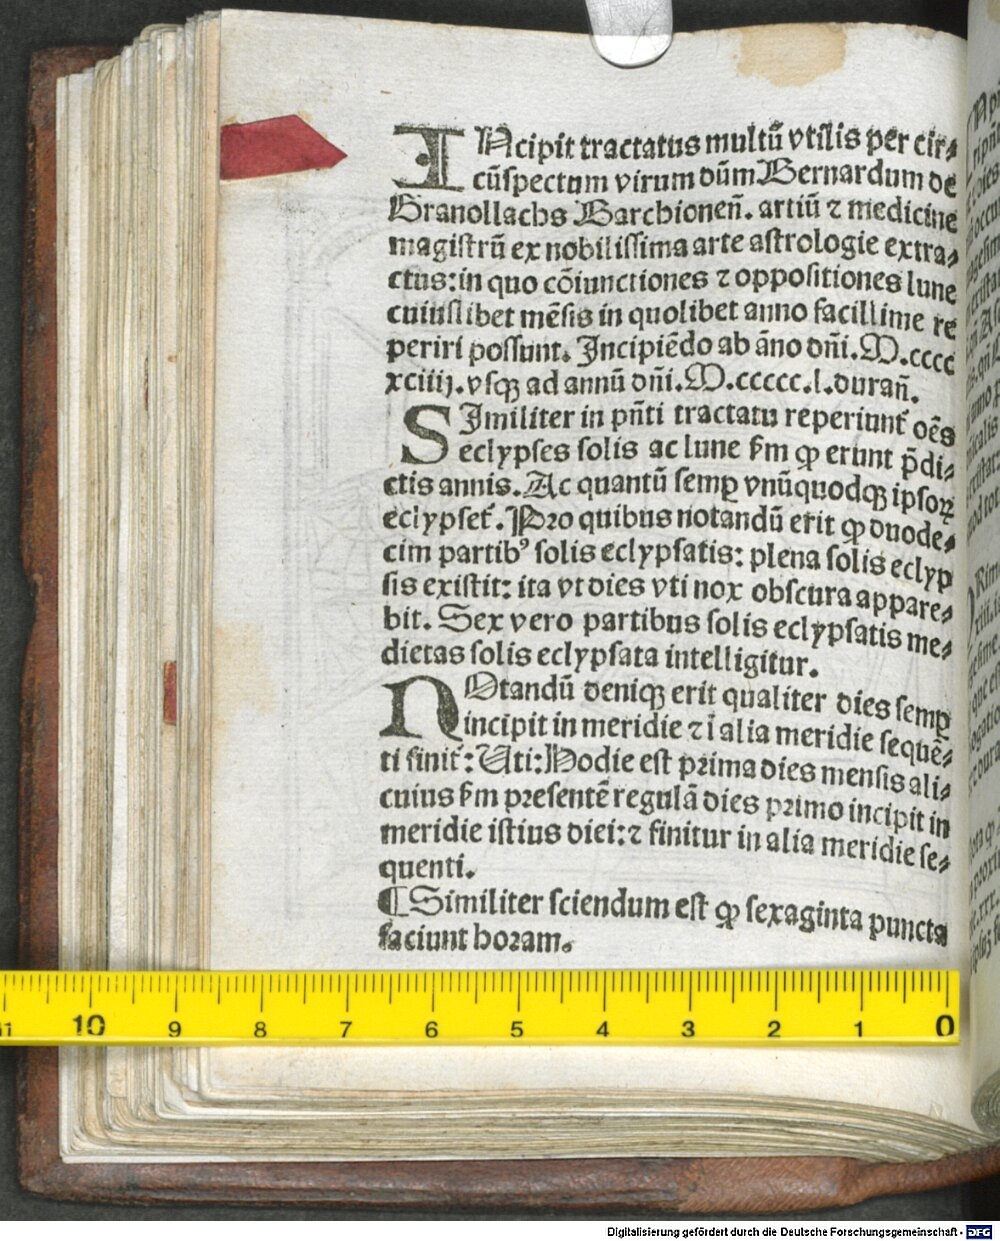 INcipit tractatus multū vtilis per cir⸗
cūspectum virum dūm Bernardum de
Granollachs Barchionen̄. artiū ⁊ medicine
magistrū ex nobilissima arte astrologie extra⸗
ctus: in quo cōiunctiones ⁊ oppositiones lune
cuiuslibet mēsis in quolibet anno facillime re
periri possunt. Incipiēdo ab āno dn̄i. M.cccc
xciiij. vsqꝫ ad annū dn̄i. M.ccccc.l. duran̄.
SImiliter in pn̄ti tractatu reperiunt᷑ oēs
eclypses solis ac lune ẜm ꝙ erunt p̄di⸗
ctis annis. Ac quantū semꝑ vnūquodqꝫ ipsoꝝ
eclypset᷑. Pro quibus notandū erit ꝙ duode⸗
cim partibꝰ solis eclypsatis: plena solis eclyp
sis existit: ita vt dies vti nox obscura appare⸗
bit. Sex vero partibus solis eclypsatis me⸗
dietas solis eclypsata intelligitur.
NOtandū deniqꝫ erit qualiter dies semꝑ
incipit in meridie ⁊ ī alia meridie sequē⸗
ti finit᷑: Uti: Hodie est prima dies mensis ali⸗
cuius ẜm presentē regulā dies primo incipit in
meridie istius diei: ⁊ finitur in alia meridie se⸗
quenti.
¶ Similiter sciendum est ꝙ sexaginta puncta
faciunt horam.
11 10 9 8 7 6 5 4 3 2 1 0
Digitalisierung gefördert durch die Deutsche Forschungsgemeinschaft - DFG